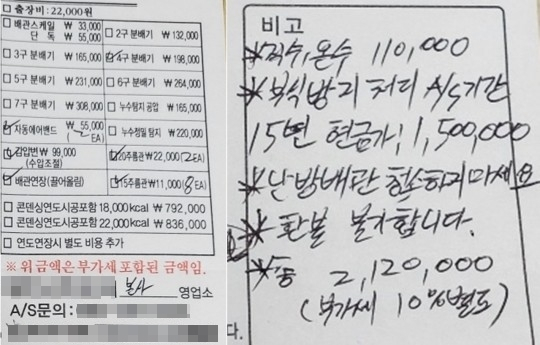 □ 출장비: 22,000원
□ 배관스케일 ₩ 33,000
단 독 ₩ 55,000
□ 2구 분배기 ₩ 132,000
□ 3구 분배기 ₩ 165,000
☑ 4구 분배기 ₩ 198,000
□ 5구 분배기 ₩ 231,000
□ 6구 분배기 ₩ 264,000
□ 7구 분배기 ₩ 308,000
□ 누수탐지 공압 ₩ 165,000
☑ 자동에어밴드 ₩ 55,000
( EA)
□ 누수정밀 탐지 ₩ 220,000
☑ 감압변 ₩ 99,000
(수압조절)
☑ 20주름관 ₩ 22,000 (2EA)
☑ 배관연장(끌어올림)
☑ 15주름관 ₩ 11,000 (8EA)
□ 콘덴싱연도시공포함 18,000kcal ₩ 792,000
□ 콘덴싱연도시공포함 22,000kcal ₩ 836,000
□ 연도연장시 별도 비용 추가
※ 위금액은 부가세 포함된 금액임.
본사 영업소
A/S문의 :
비고
* 직수, 온수 110,000
* 부식방지 처리 A/S기간
15년 현금가 1,500,000
* 난방배관 청소하지마세요
* 환불 불가합니다.
* 총 2,120,000
(부가세 10%별도)
다.